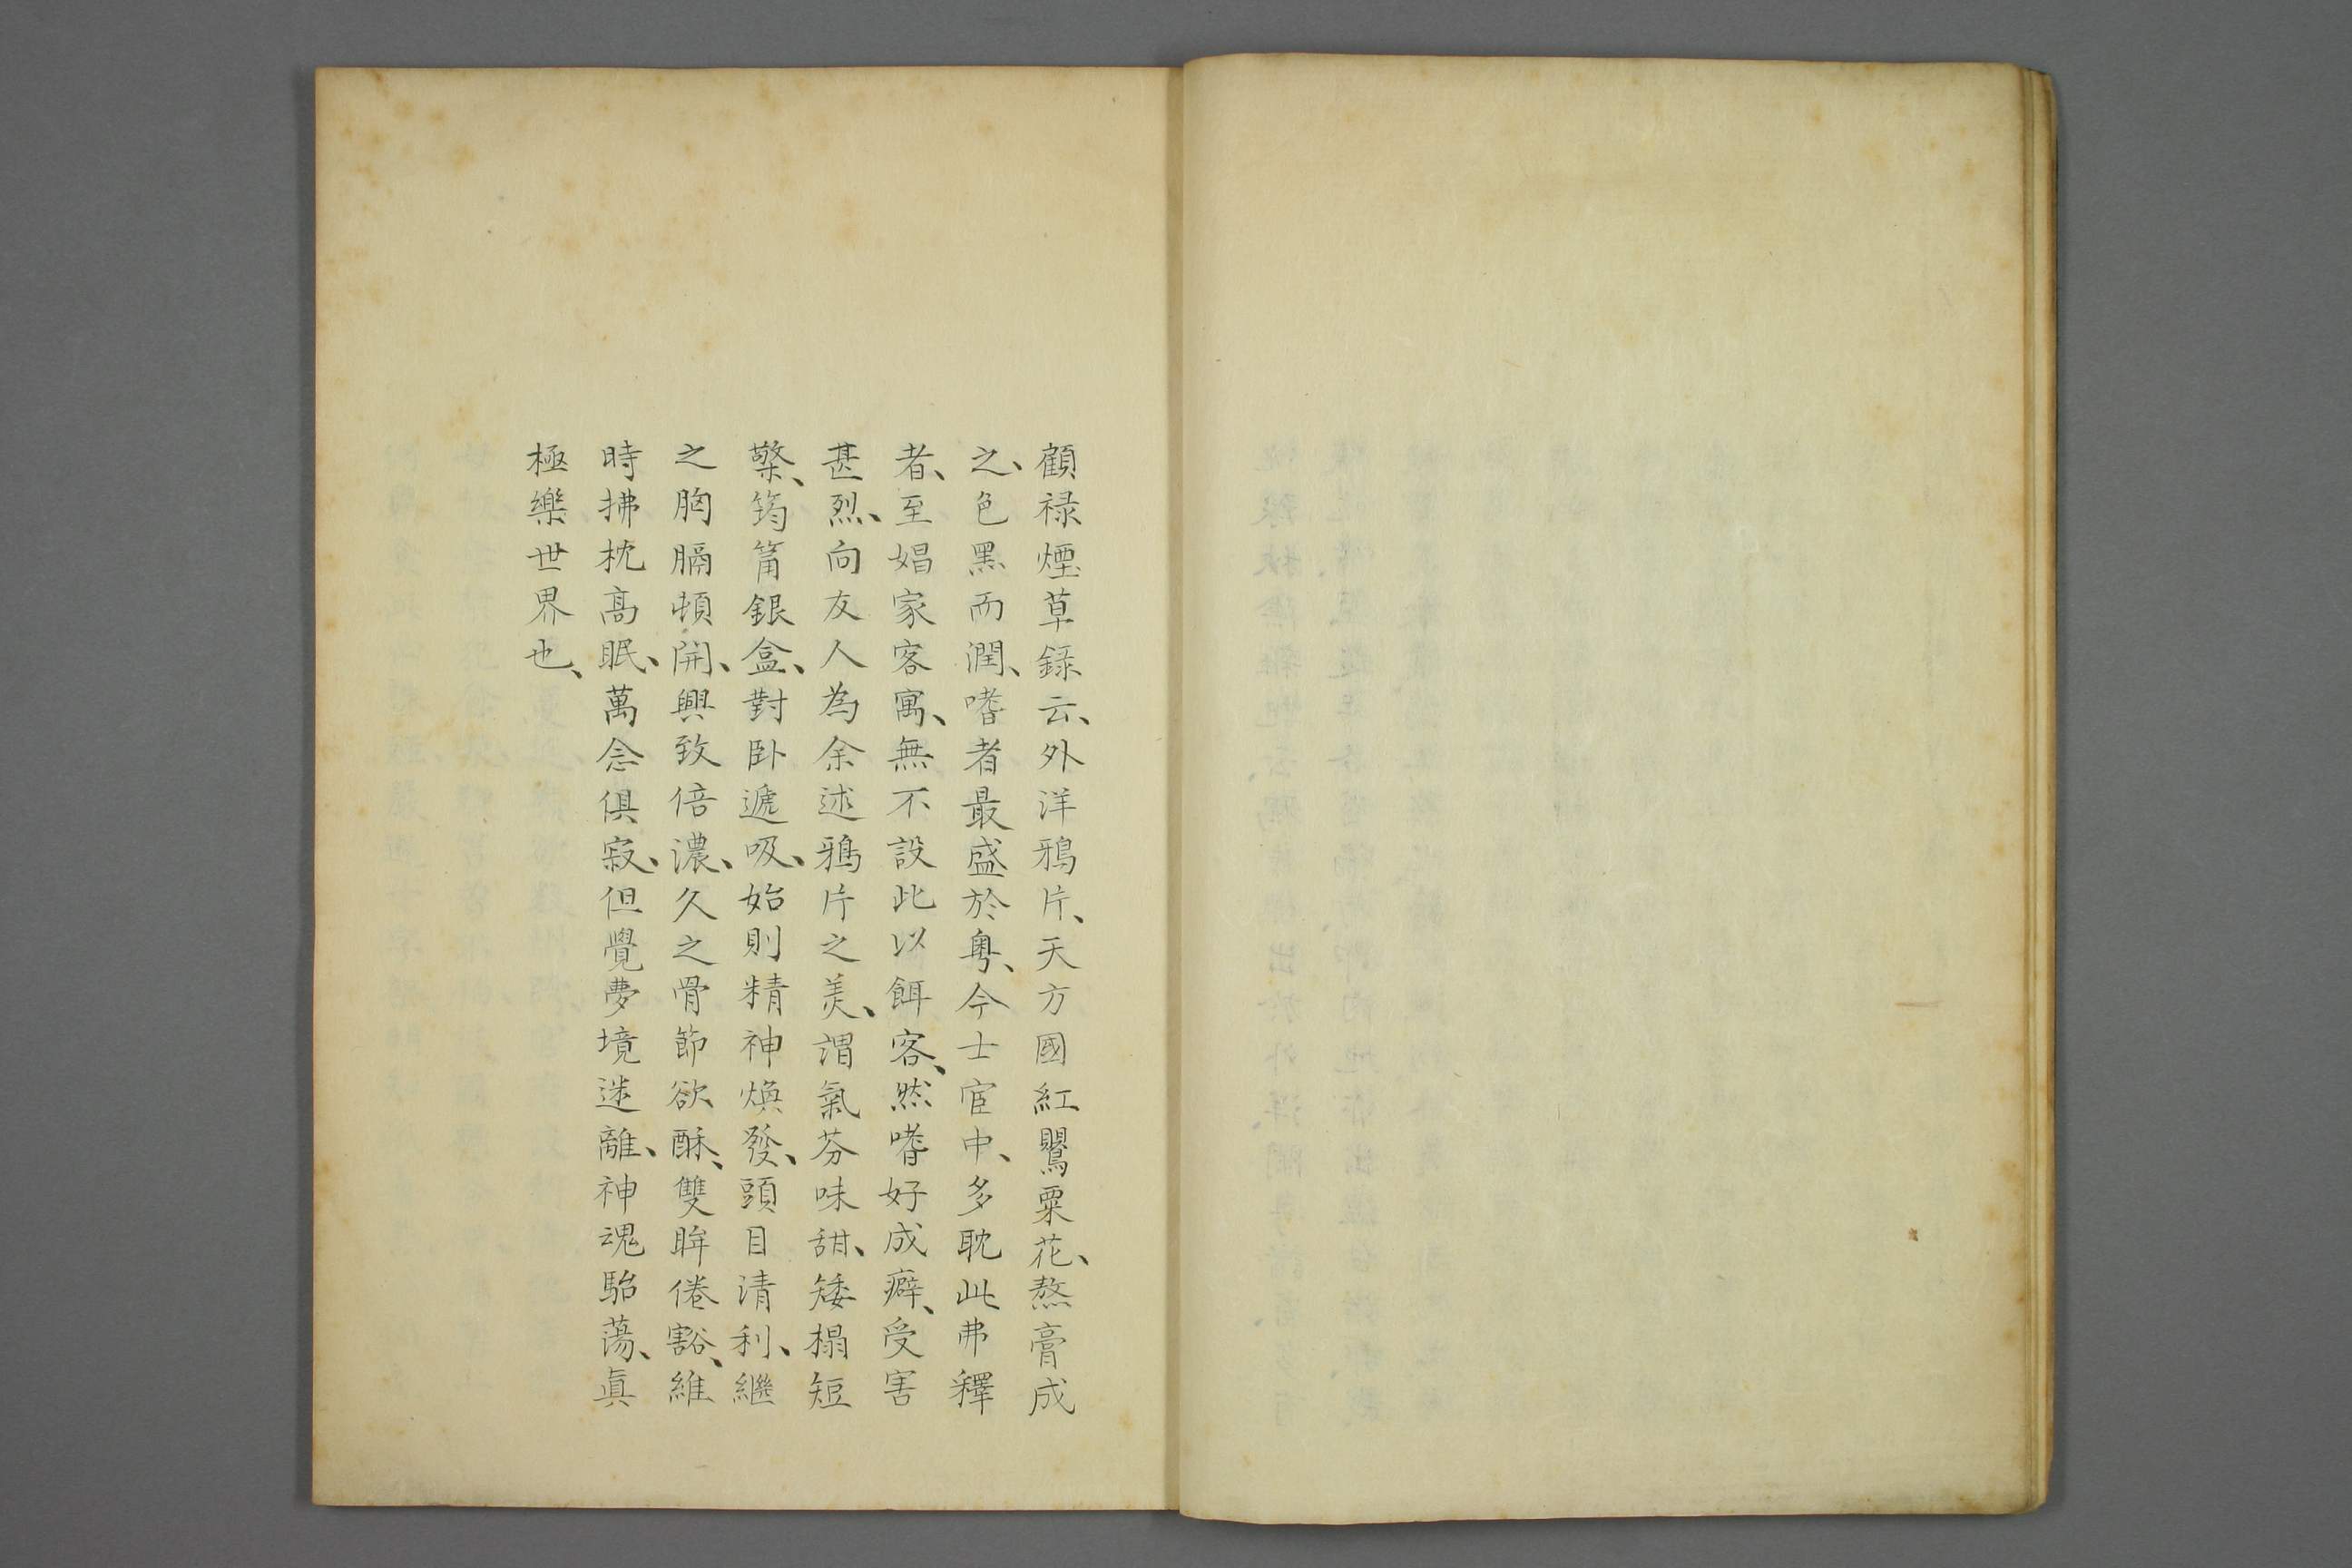 顧祿煙草錄云、外洋鴉片、天方國紅鸎粟花、熬膏成
之、色黑而潤、嗜者最盛於粤、今士宦中、多耽此弗釋
者、至娼家客寓、無不設此以餌客、然嗜好成癖、受害
甚烈、向友人為余述鴉片之美、謂氣芬味甜、矮榻短
檠、筠筩銀盒、對卧遞吸、始則精神煥發、頭目清利、繼
之胸膈頓開、興致倍濃、久之骨節欲酥、雙眸倦豁、維
時拂枕高眠、萬念俱寂、但覺夢境迷離、神魂駘蕩、真
極樂世界也、